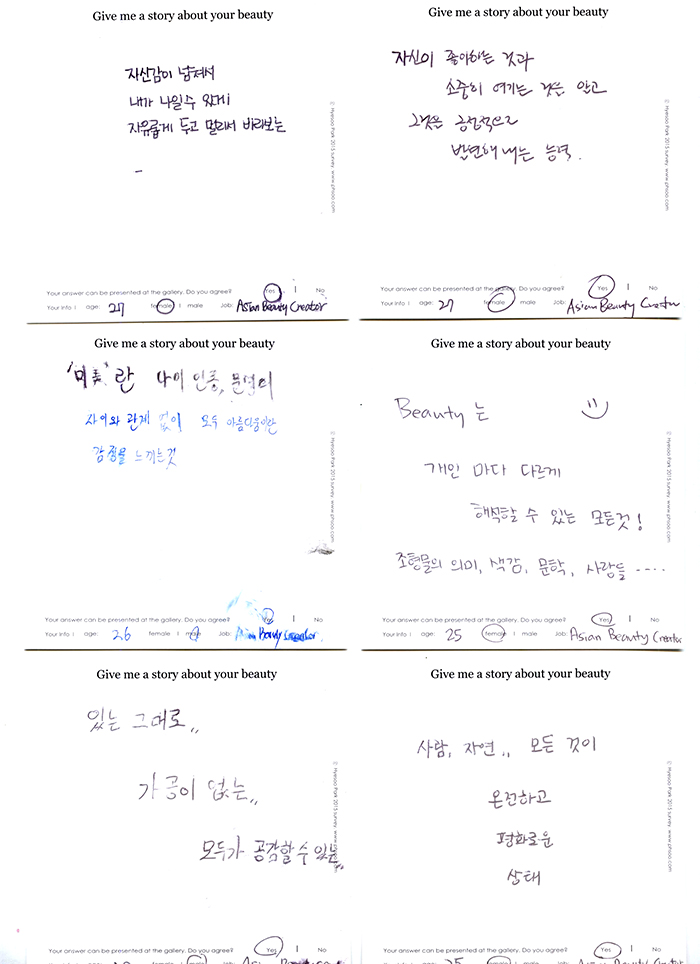 Give me a story about your beauty
자신감이 넘쳐서
내가 나일 수 있게
자유롭게 두고 멀리서 바라보는
© Hyesoo Park 2015 survey. www.phsoo.com
Your answer can be presented at the gallery. Do you agree? Yes | No
Your Info | age: 27 female | male Job: Asian Beauty Creator
Give me a story about your beauty
자신이 좋아하는 것과
소중히 여기는 것을 알고
그것을 긍정적으로
발현해 내는 능력.
© Hyesoo Park 2015 survey. www.phsoo.com
Your answer can be presented at the gallery. Do you agree? Yes | No
Your Info | age: 27 female | male Job: Asian Beauty Creator
Give me a story about your beauty
'미美'란 나이 인종, 문명의
차이와 관계 없이 모두 아름다움이란
감정을 느끼는것
© Hyesoo Park 2015 survey. www.phsoo.com
Your answer can be presented at the gallery. Do you agree? Yes | No
Your Info | age: 26 female | male Job: Asian Beauty Creator
Give me a story about your beauty
Beauty 는
개인 마다 다르게
해석할 수 있는 모든것!
조형물의 의미, 색감, 문학, 사람들 ....
© Hyesoo Park 2015 survey. www.phsoo.com
Your answer can be presented at the gallery. Do you agree? Yes | No
Your Info | age: 25 female | male Job: Asian Beauty Creator
Give me a story about your beauty
있는 그대로,,
가공이 없는,,
모두가 공감할 수 있는,,
© Hyesoo Park 2015 survey. www.phsoo.com
Your answer can be presented at the gallery. Do you agree? Yes | No
Give me a story about your beauty
사람, 자연,, 모든 것이
온전하고
평화로운
상태
© Hyesoo Park 2015 survey. www.phsoo.com
Your answer can be presented at the gallery. Do you agree? Yes | No